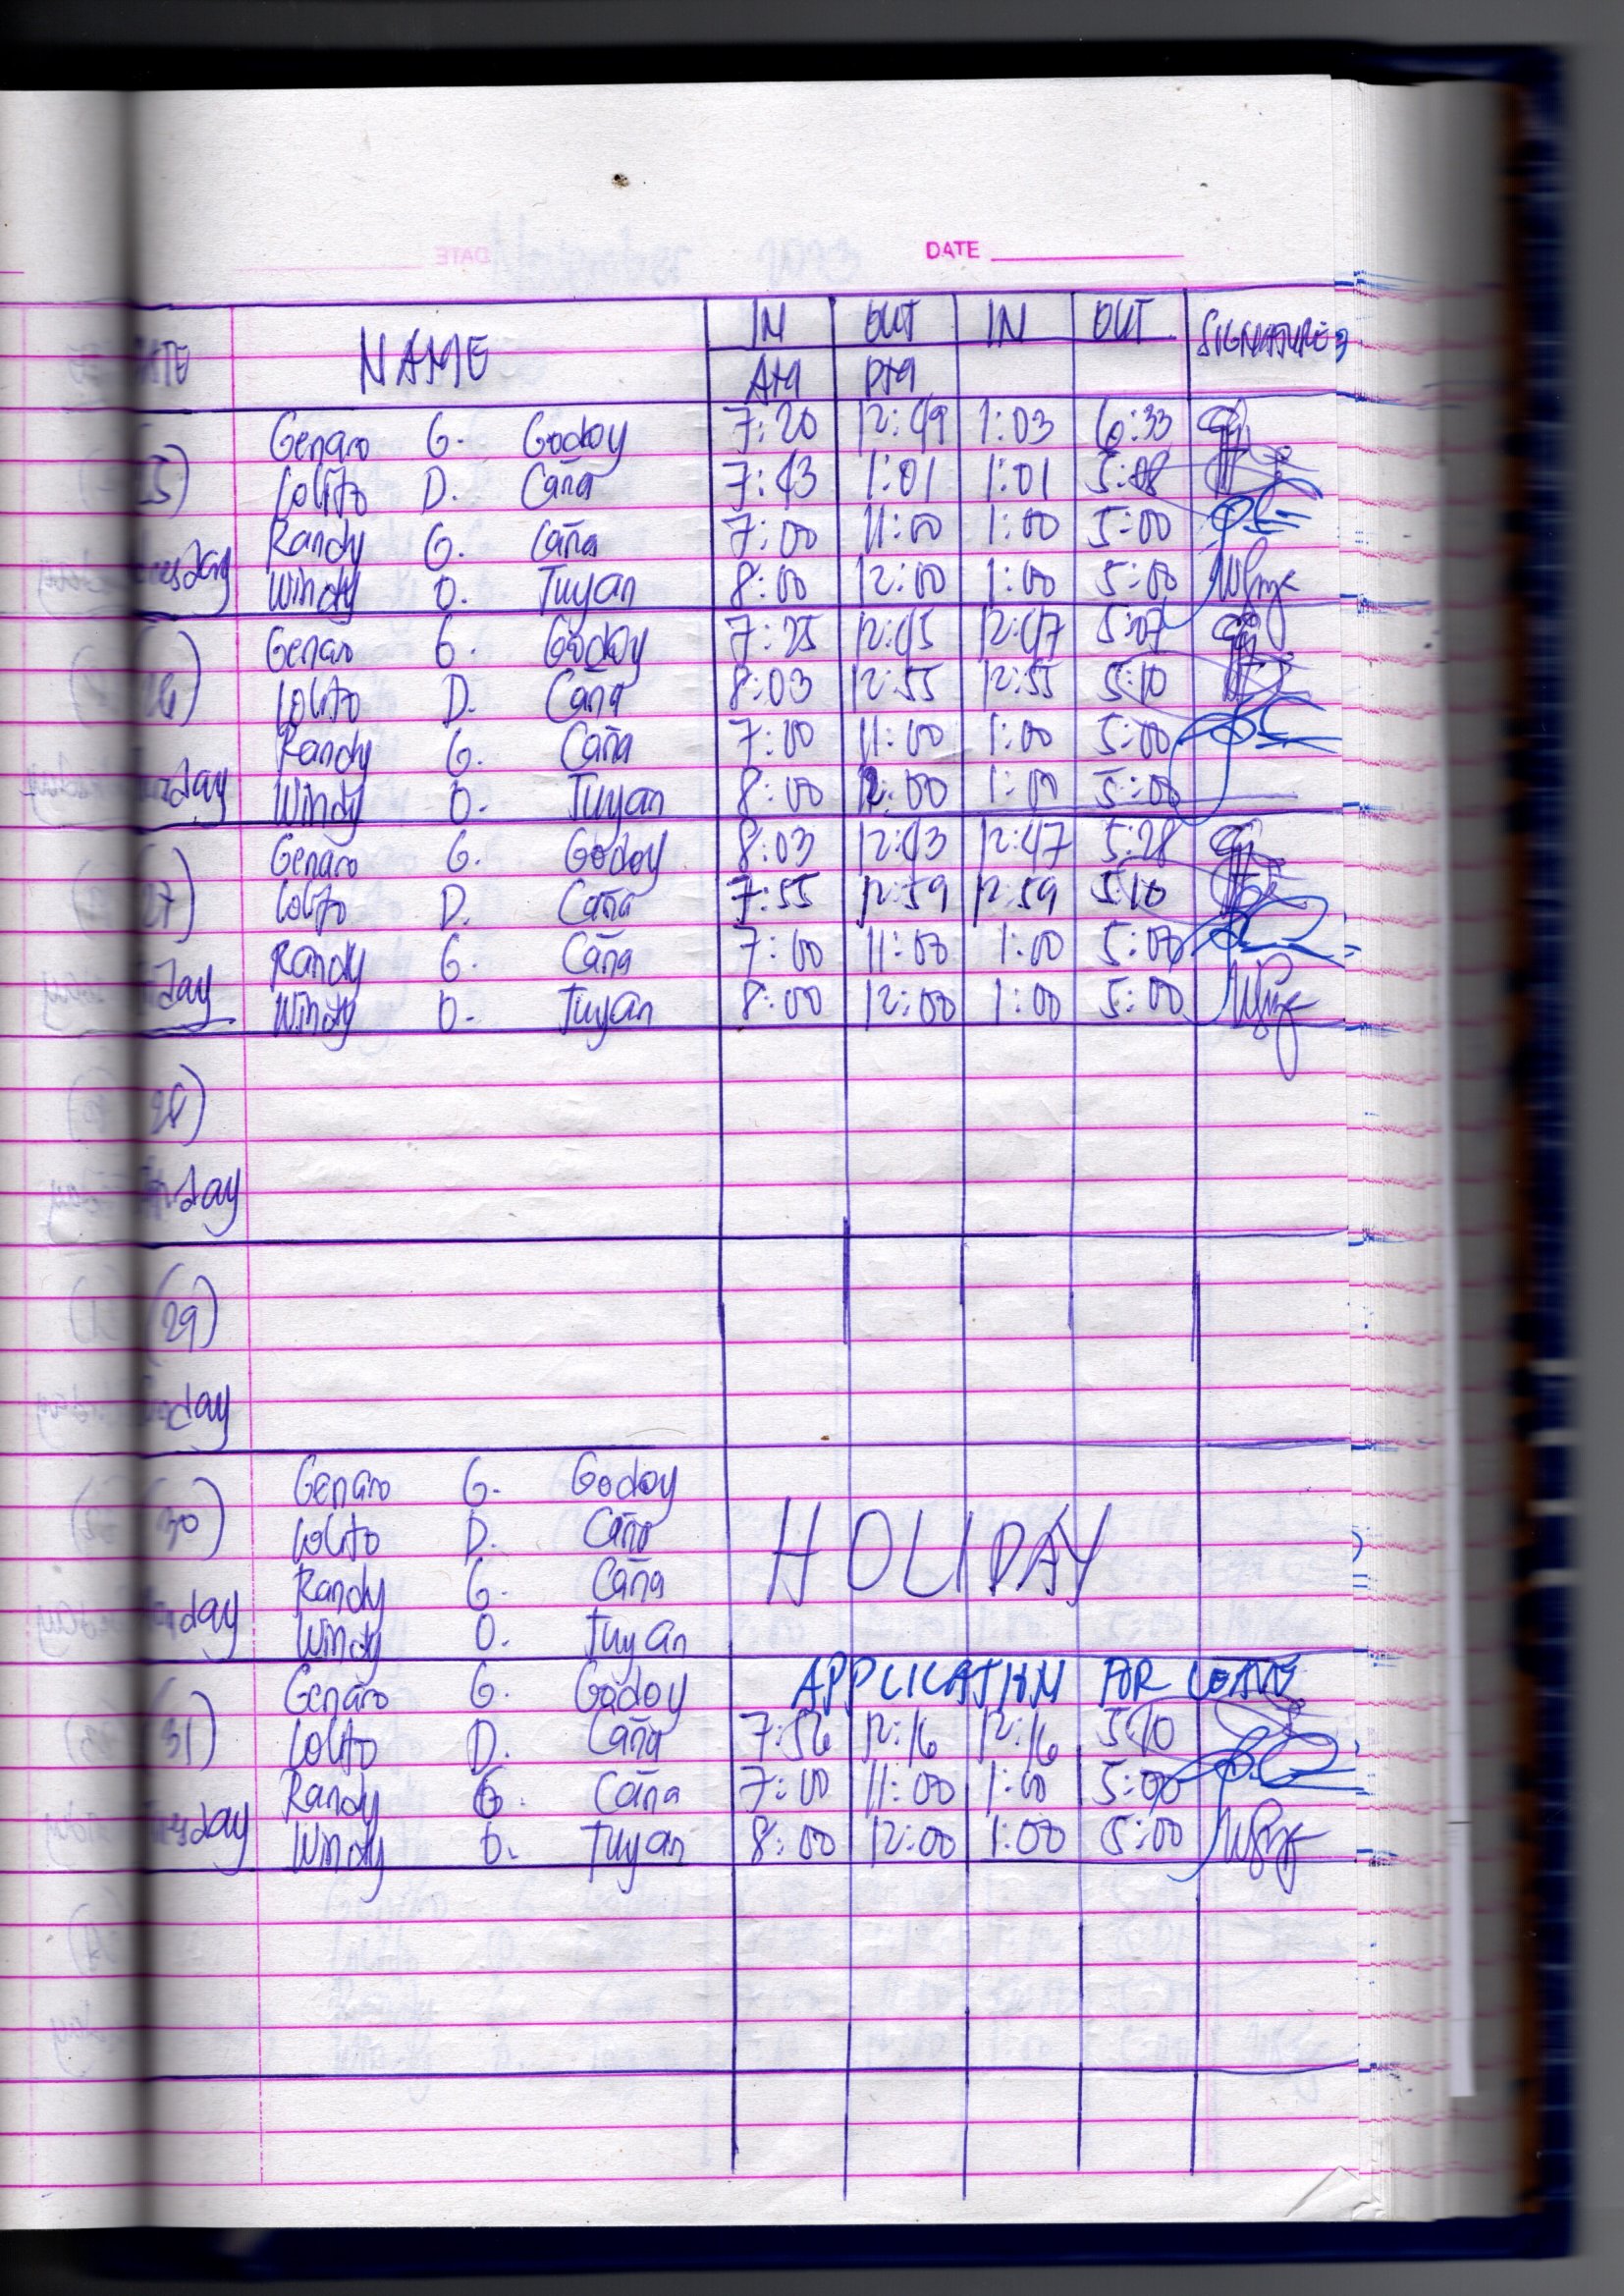 DATE
NAME IN OUT IN OUT SIGNATURES
AM PM
Genaro G. Godoy 7:20 12:49 1:03 6:33
Lolito D. Caña 7:43 1:01 1:01 5:08
Randy G. Caña 7:00 11:00 1:00 5:00
Windy O. Tuyan 8:00 12:00 1:00 5:00
Genaro G. Godoy 7:25 12:45 12:47 5:07
Lolito D. Caña 8:03 12:55 12:55 5:10
Randy G. Caña 7:00 11:00 1:00 5:00
Windy O. Tuyan 8:00 12:00 1:00 5:00
Genaro G. Godoy 8:03 12:43 12:47 5:28
27) Lolito D. Caña 7:55 12:59 12:59 5:10
Randy G. Caña 7:00 11:00 1:00 5:00
day Windy O. Tuyan 8:00 12:00 1:00 5:00
28)
day
(29)
day
Genaro G. Godoy
(30) Lolito D. Caña
HOLIDAY
Randy G. Caña
day Windy O. Tuyan
Genaro G. Godoy APPLICATION FOR LEAVE
31) Lolito D. Caña 7:56 12:16 12:16 5:10
Randy G. Caña 7:00 11:00 1:00 5:00
day Windy O. Tuyan 8:00 12:00 1:00 5:00